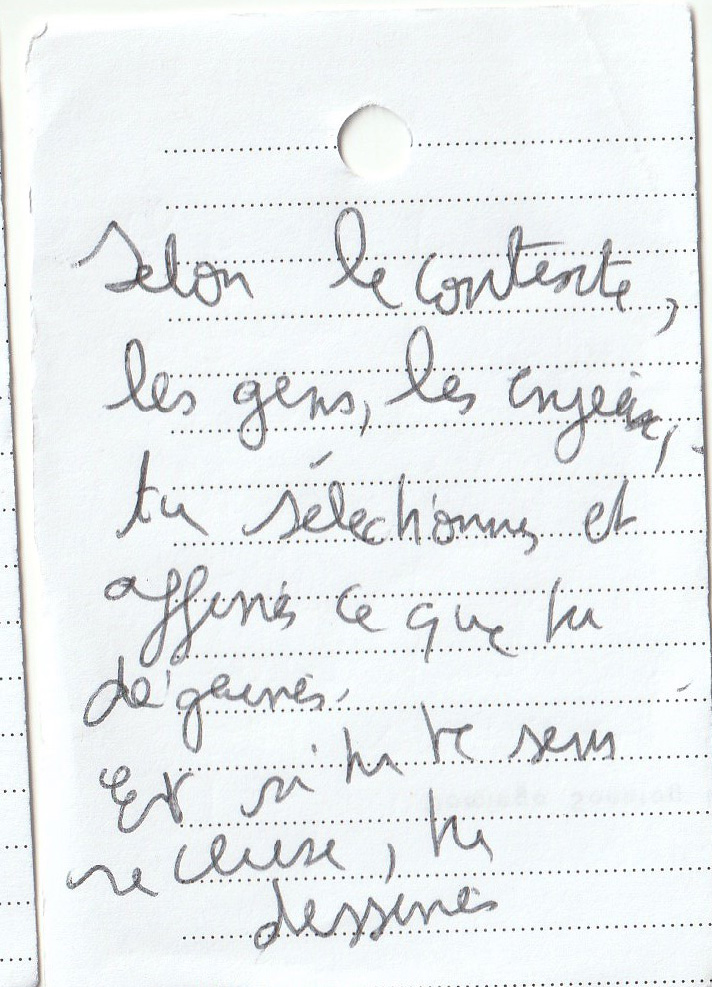 Selon le contexte,
les gens, les enjeux,
tu sélectionnes et
affines ce que tu
dégaines.
Et si tu te sens
recluse, tu
dessines